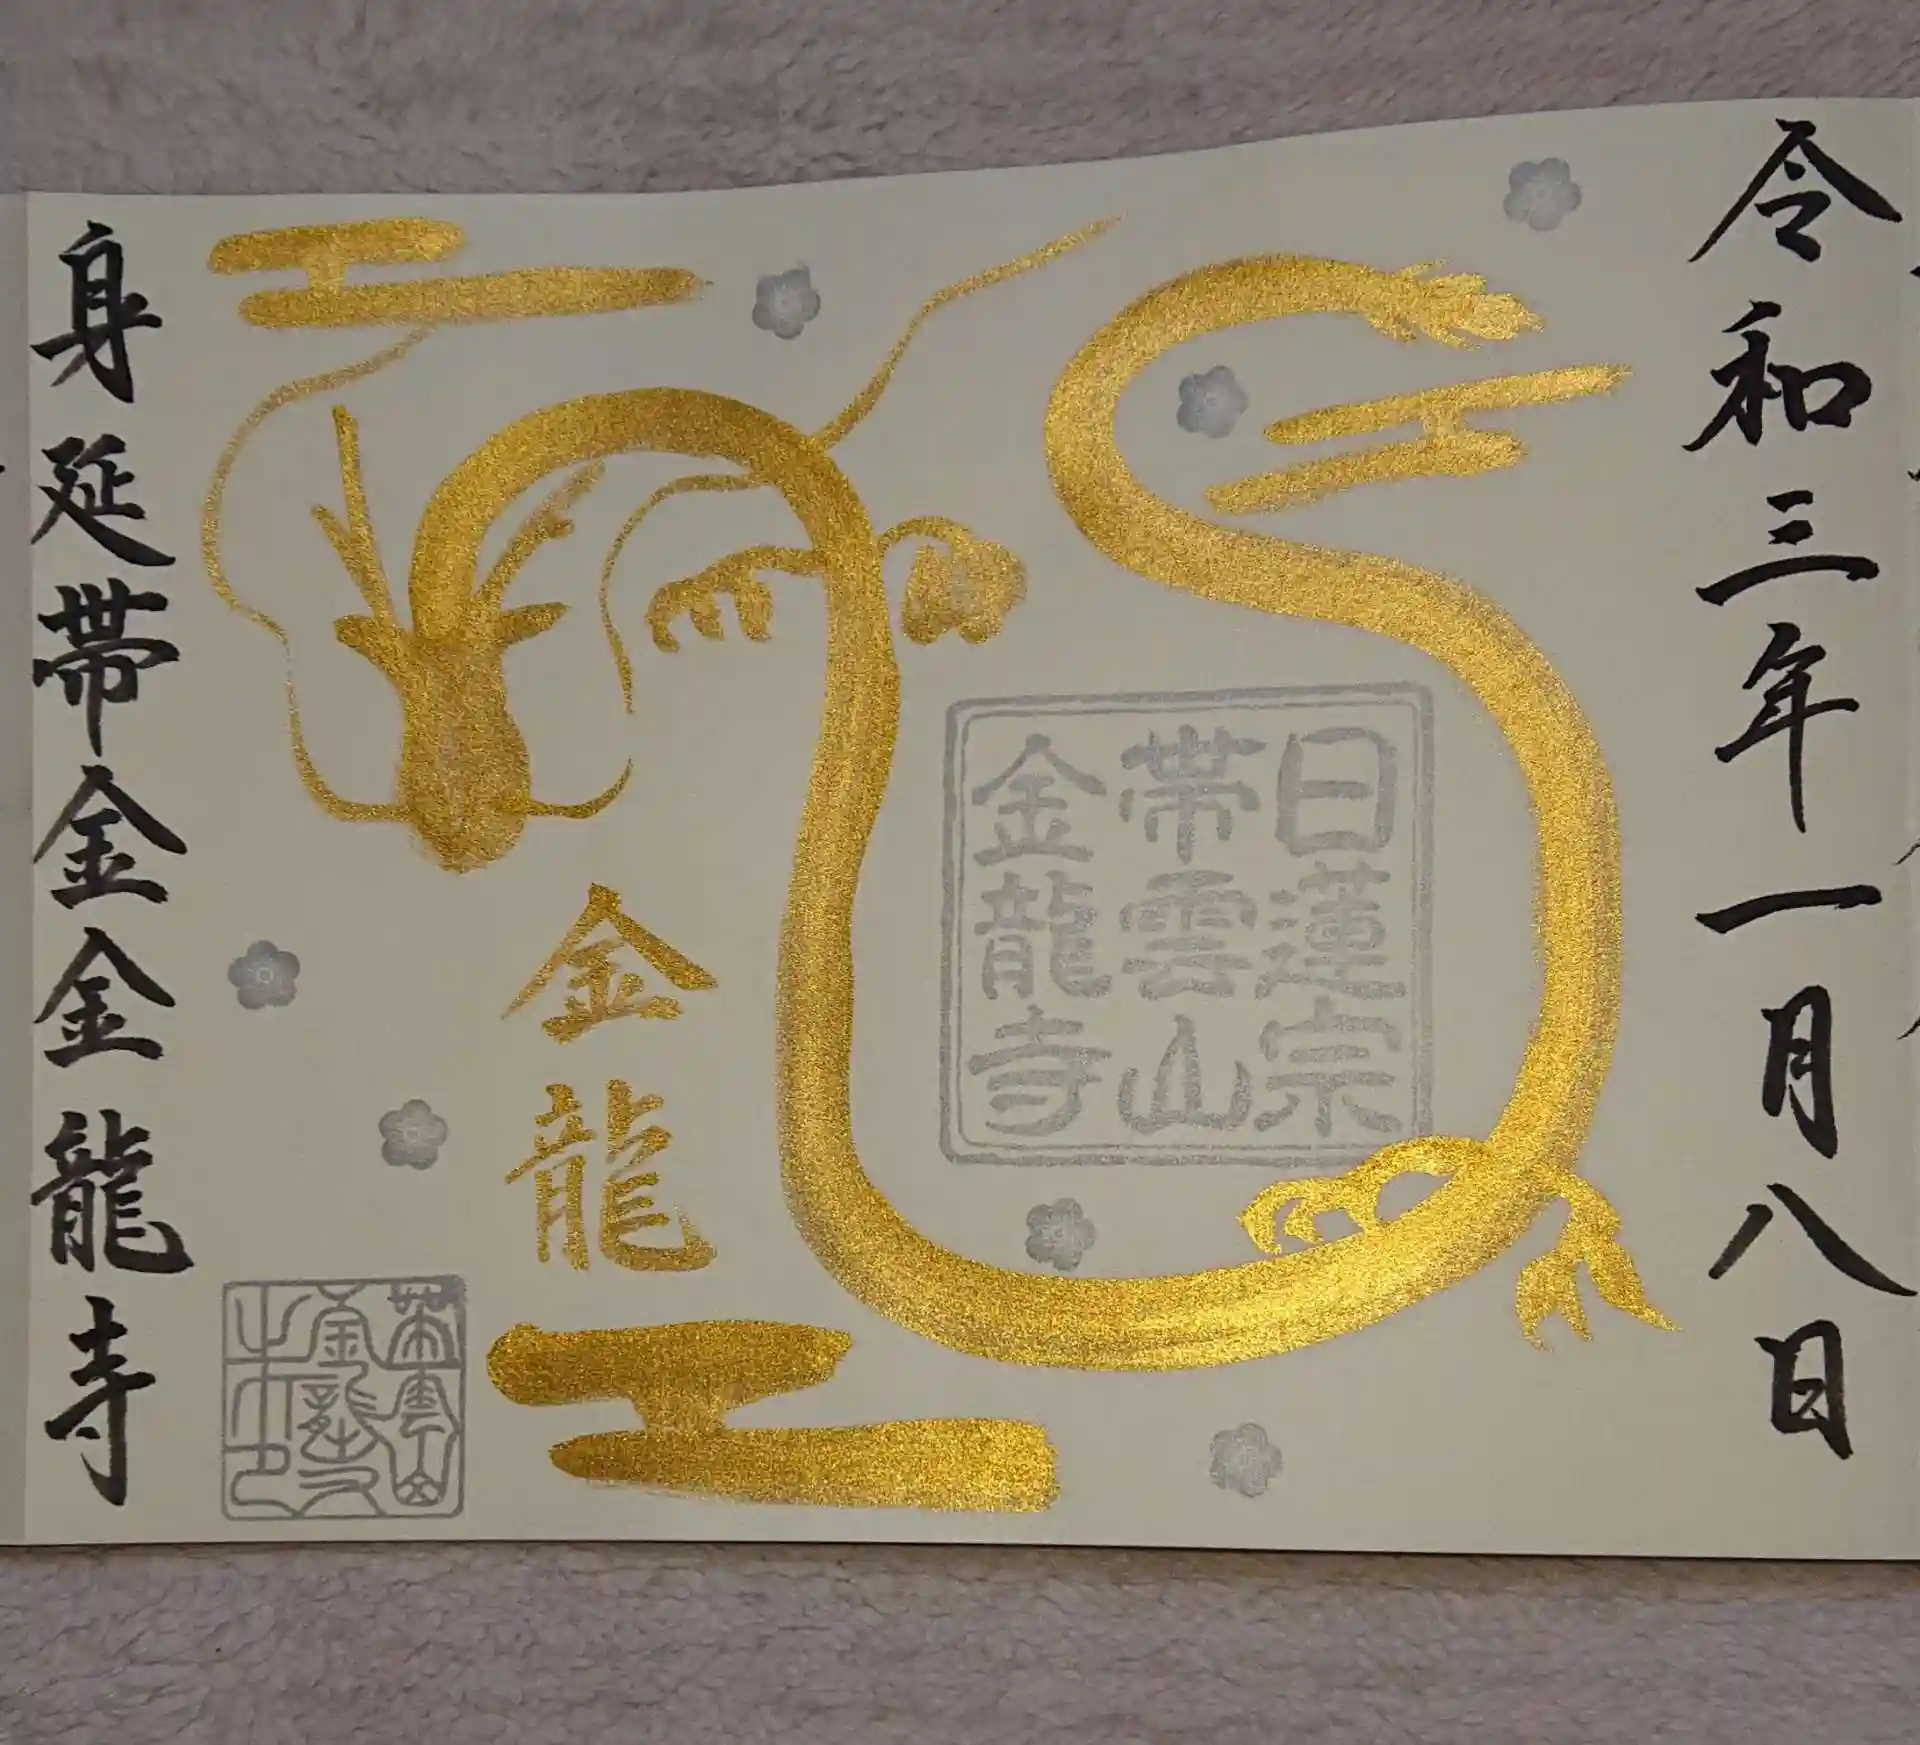 令和三年一月八日
日蓮宗
帯雲山
金龍寺
金龍
身延帯金金龍寺
金龍寺